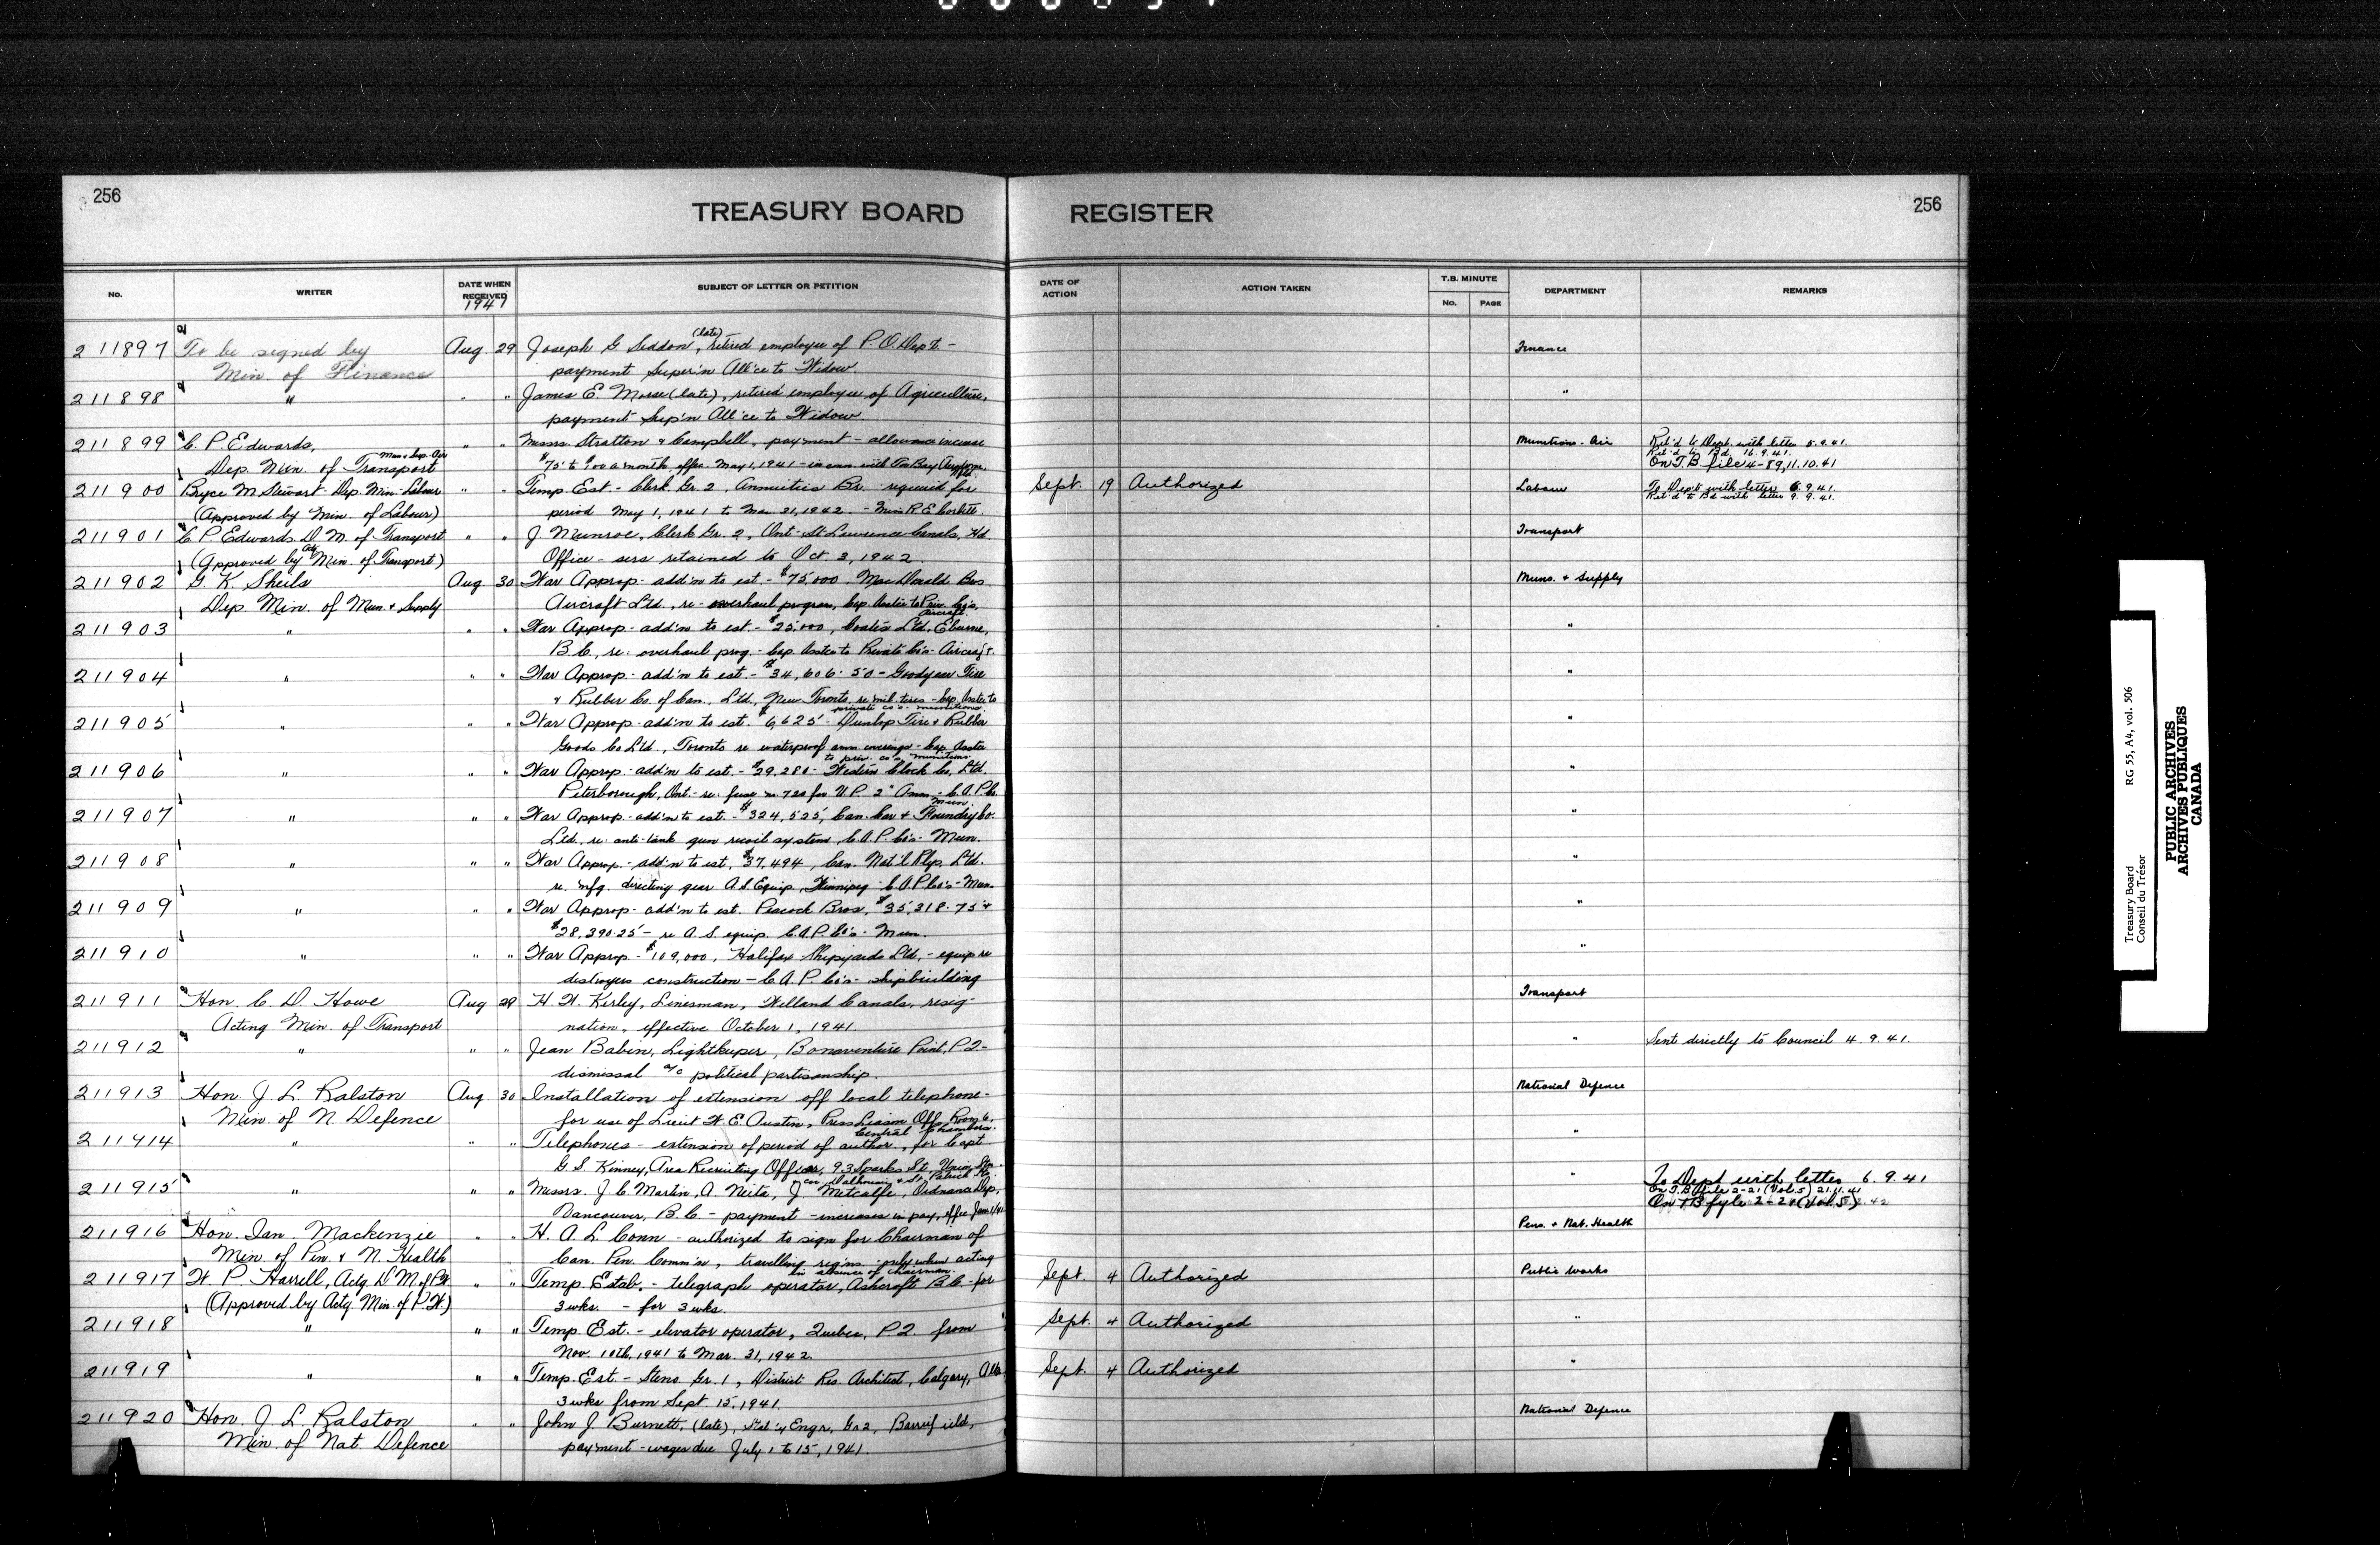 256
TREASURY BOARD REGISTER
256
No. WRITER DATE WHEN RECEIVED SUBJECT OF LETTER OR PETITION DATE OF ACTION ACTION TAKEN T.B. MINUTE No. PAGE DEPARTMENT REMARKS
1941
211897 To be signed by Aug 29 Joseph G Seddon (late), retired employee of P.O. Dep't - Finance
Min. of Finance payment Super'n All'ce to Widow
211898 " " " James E. Morse (late), retired employee of Agriculture, "
payment Sup'n All'ce to Widow
211899 C. P. Edwards, " " Messrs. Stratton & Campbell, payment - allowance increase Munitions - Air Ret'd to Dept. with letter 5.9.41.
Dep. Min. of Transport $75 to $100 a month, effec. May 1, 1941 - Ret'd to Bd. 16.9.41.
On T.B file 4-89, 11.10.41
211900 Bryce M Stewart - Dep. Min - Labour " " Temp Est - Clerk Gr. 2, Annuities Br. required for Sept. 19 Authorized Labour To Dep't with letter 6.9.41.
(Approved by Min. of Labour) period May 1, 1941 to Mar 31, 1942 - Miss R. E. Corbett. Ret'd to Bd with letter 9.9.41.
211901 C. P. Edwards D. M. of Transport " " J Munroe, Clerk Gr. 2, Ont-St Lawrence Canals, Hd Transport
(Approved by Actg Min. of Transport) Office - sers retained to Oct 3, 1942.
211902 G. K. Sheils Aug 30 War Approp - add'n to est. - $75,000. MacDonald Bros Muns. & Supply
Dep. Min. of Mun. & Supply Aircraft Ltd., re - overhaul program, Cap. Ass'ce to Priv. Co's. Aircraft.
211903 " " " War Approp - add'n to est. - $25,000, Coates Ltd. Eburne, "
B.C., re: overhaul prog. - Cap Asst'ce to Private Co's - Aircraft.
211904 " " " War Approp - add'n to est. - $34,606.50 - Goodyear Tire "
& Rubber Co. of Can., Ltd., New Toronto, re: mil. tires - Cap. Asst'ce to private co's - munitions
211905 " " " War Approp - add'n to est. $6,625 - Dunlop Tire & Rubber "
Goods Co Lt'd., Toronto re waterproof amm coverings - Cap Asst'ce to priv. co's munitions
211906 " " " War Approp - add'n to est. - $29,280 - Western Clock Co. Ltd. "
Peterborough, Ont. - re: fuse no 720 for U.P. 2" Amm - C.A.P. Co. Mun.
211907 " " " War Approp - add'n to est. - $324,525, Can. Car & Foundry Co. "
Ltd., re: anti-tank gun recoil system, C.A.P. Co's - Mun.
211908 " " " War Approp. - add'n to est. $37,494, Can. Nat'l Rlys. Ltd. "
re. mfg. directing gear A.S. Equip, Winnipeg C.A.P. Co's - Mun.
211909 " " " War Approp - add'n to est. Peacock Bros. $35,318.75 & "
$28,390.25 - re A.S. equip. C.A.P. Co's - Mun.
211910 " " " War Approp - $109,000, Halifax Shipyards Ltd. - equip re "
destroyers construction - C.A.P. Co's - shipbuilding
211911 Hon. C. D. Howe Aug 29 H. W. Kirley, Linesman, Welland Canals, resig- Transport
Acting Min. of Transport nation, effective October 1, 1941.
211912 " " " Jean Babin, Lightkeeper, Bonaventure Point, P.Q. - " Sent directly to Council 4.9.41.
dismissal a/c political partisanship.
211913 Hon. J. L. Ralston Aug 30 Installation of extension off local telephone - National Defence
Min. of N. Defence for use of Lieut W. E. Austin, Press Liason Off. Room 6, Central Chambers.
211914 " " " Telephones - extension of period of author., for Capt. "
G. S. Kinney, Area Recruiting Officer, 93 Sparks St, Union Stn. cor. Dalhousie & St. Patrick Sts.
211915 " " " Messrs. J C Martin, A. Neita, J Metcalfe, Ordnance Dep., " To Dept with letter 6.9.41
Vancouver, B.C. - payment - increases in pay, effec Jan 1/41 On T.B file 2-21 (Vol.5) 21.11.41
On T B fyle 2-21 (Vol.5) .42
211916 Hon. Ian. Mackenzie " " H. A. L. Conn - authorized to sign for Chairman of Pens. & Nat. Health
Min. of Pen. & N. Health Can. Pen. Comm'n, travelling req'ns - only when acting in absence of chairman.
211917 W. P. Harrell, Actg. D. M. of P.W. " " Temp. Estab. - telegraph operator, Ashcroft B.C. - for Sept. 4 Authorized Public Works
(Approved by Actg. Min. of P.W.) 3 wks. - for 3 wks.
211918 " " " Temp Est. - elevator operator, Quebec, P.Q. from Sept. 4 Authorized "
Nov. 10th, 1941 to Mar. 31, 1942.
211919 " " " Temp. Est - Steno. Gr. 1, District Res. Architect, Calgary, Alta Sept. 4 Authorized "
3 wks from Sept. 15, 1941.
211920 Hon. J. L. Ralston " " John J. Burnett, (late), Stat'y Engr. Gr 2, Barriefield, National Defence
Min. of Nat. Defence payment - wages due July 1 to 15, 1941.
Treasury Board RG 55, A4, vol. 506
Conseil du Trésor
PUBLIC ARCHIVES
ARCHIVES PUBLIQUES
CANADA